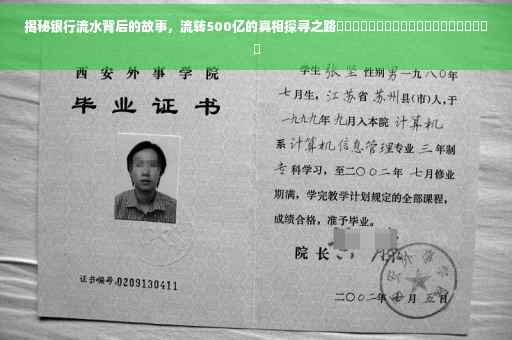 揭秘银行流水背后的故事，流转500亿的真相探寻之路
西安外事学院
毕业证书
证书编号:0209130411
学生 张坚 性别 男 一九八〇年
七月生，江苏省 苏州县(市)人,于
一九九九年 九月入本院 计算机
系 计算机信息管理专业 三年制
专科学习，至二〇〇二年 七月修业
期满，学完教学计划规定的全部课程，
成绩合格，准予毕业。
院长
二〇〇二年 月 五日